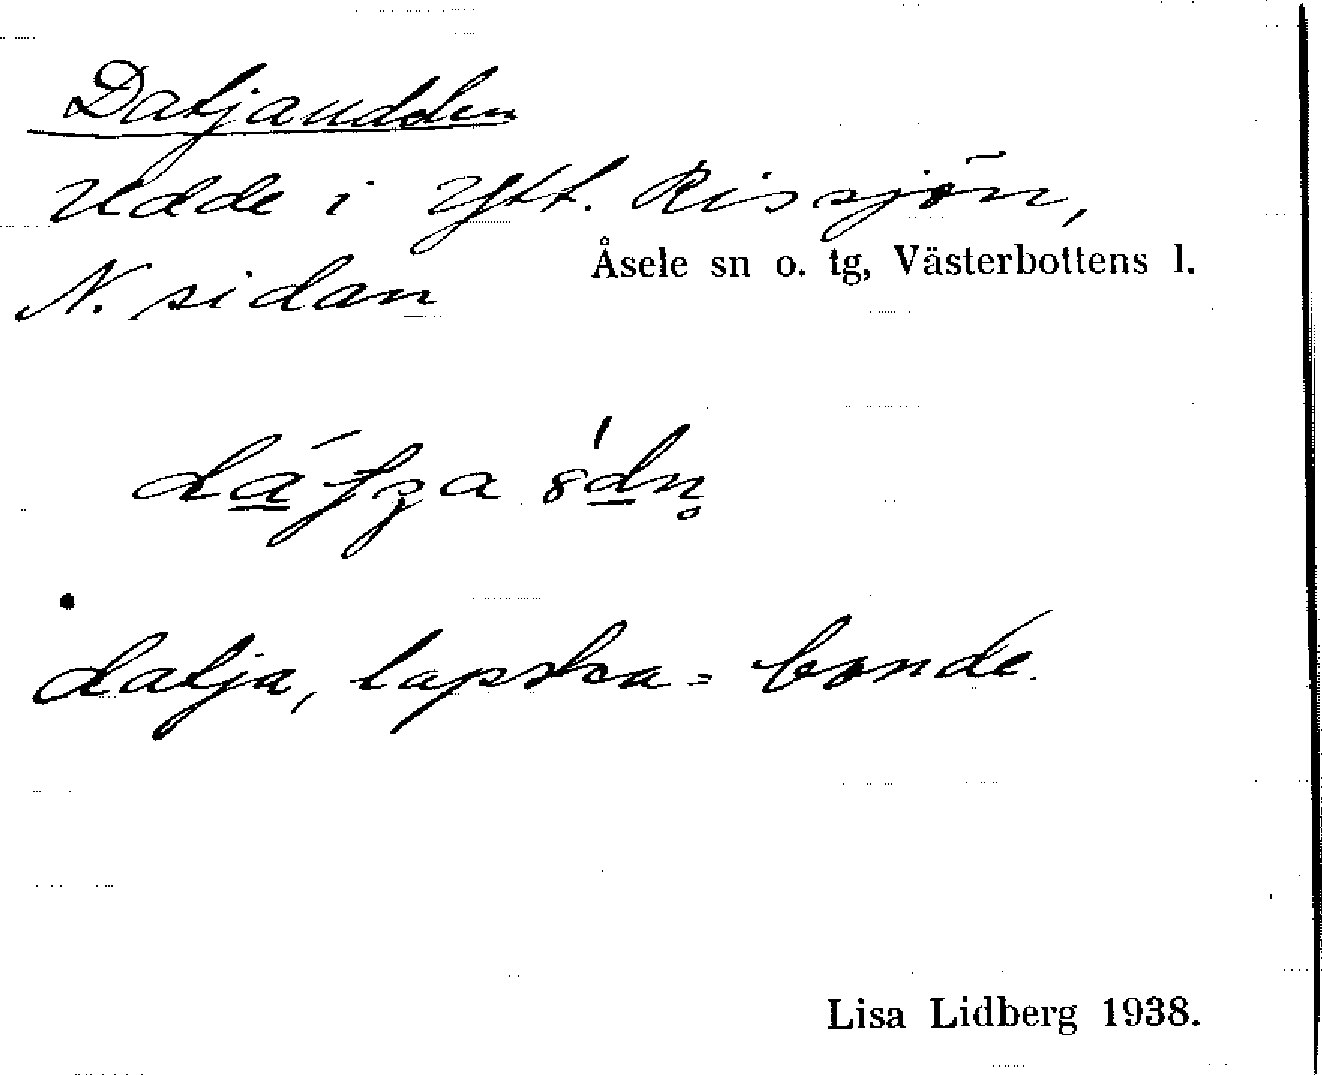 Datjaudden
Udde i Ytt. Rissjön,
Åsele sn o. tg, Västerbottens l.
N. sidan
datja, lapska = bonde.
Lisa Lidberg 1938.